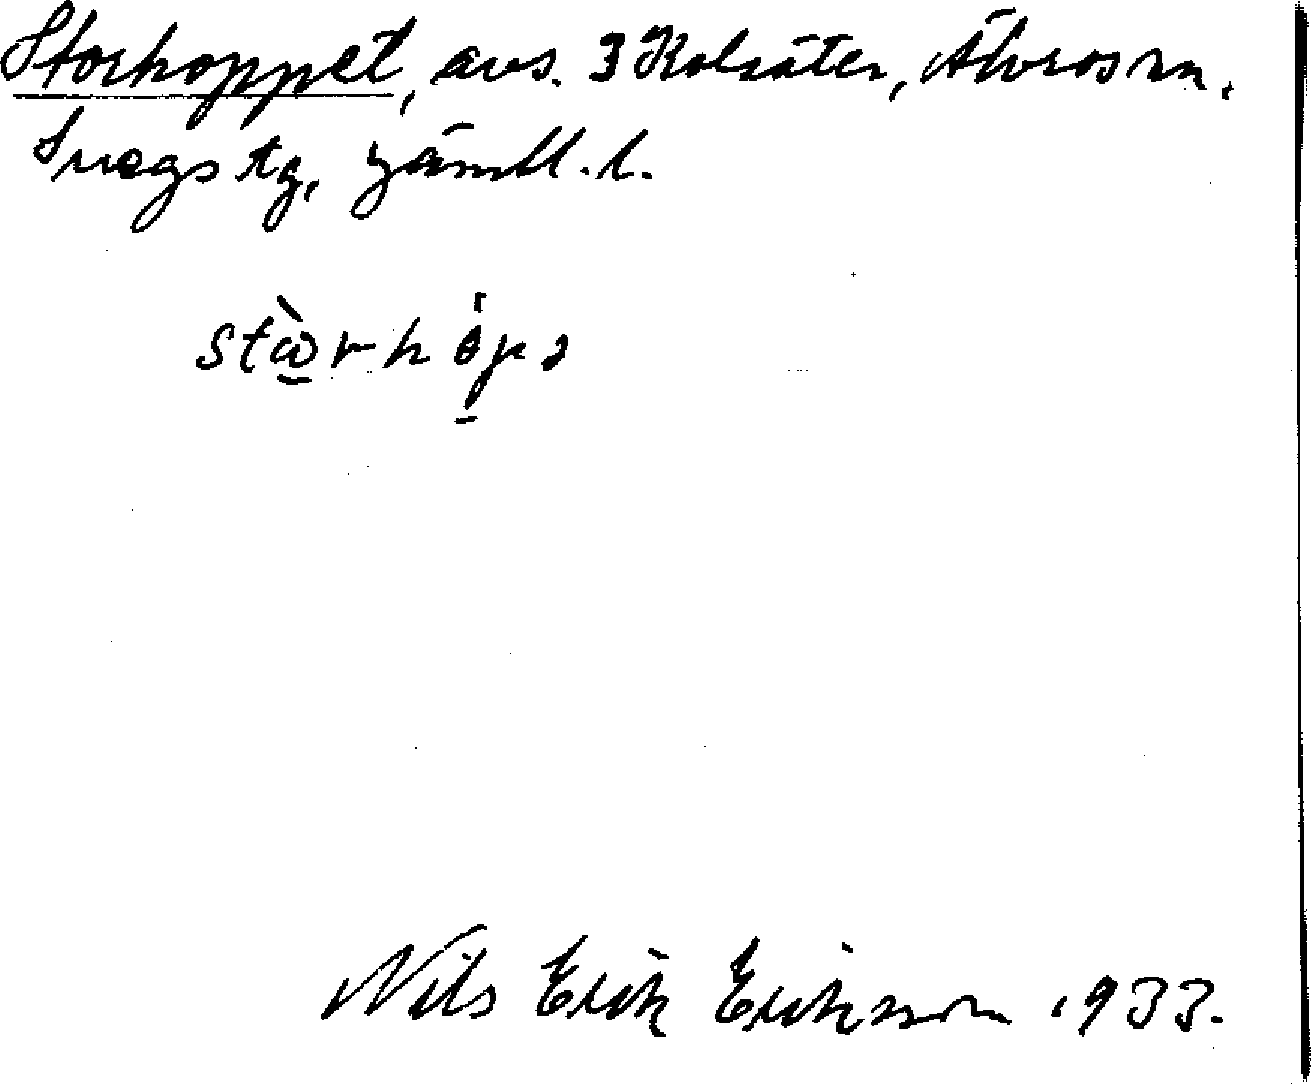 Storhoppet, avs. 3 Kolsäter, Älvros sn.
Svegs tg, Jämtl. l.
stὼ̲rhópə
Nils Erik Eriksson 1933.